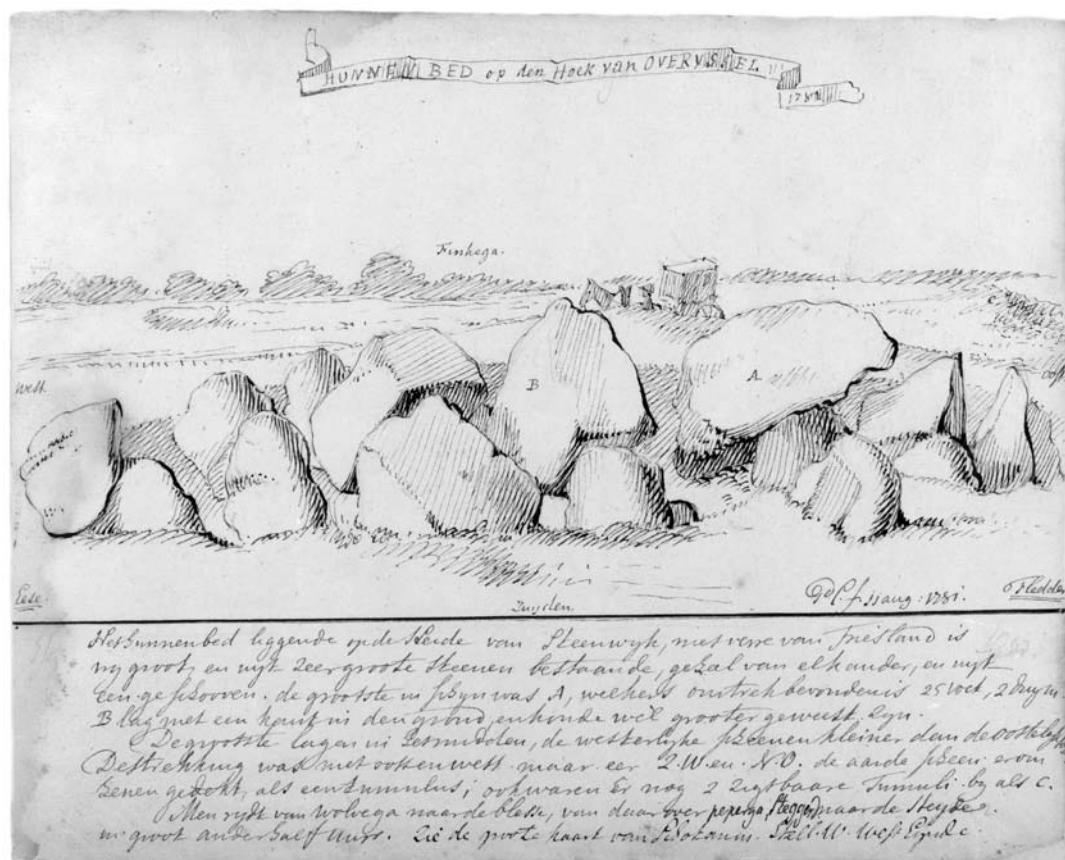 HUNNEN BED op den Hoek van OVERYSSEL
1781
Finkega.
West
C
B
A
Eese.
Zuyden.
11 aug: 1781.
Fledder
Het hunnenbed liggende op de Heide van Steenwyk, niet verre van Friesland is
vry groot, en uyt zeer groote steenen bestaande, van elkander, en uyt
een geschooven. de grootste in was A, welkers omtrek bevonden is 25 voet, 2 duym.
B lag met een kant in den grond, en konde wel grooter geweest zyn.
De grootste lagen in midden, de westerlyke steenen kleiner dan de oostelyke
was niet oost en west maar eer Z.W. en N.O. de aarde scheen erom
henen gehoht, als een tumulus; ook waren er nog 2 zigtbaare Tumuli by als C.
Men rydt van wolvega naar de blesse, van daar over peperga, naar de Heyde
in groot anderhalf uur. Zie de groote kaart van Schotanus. Stell. W. West Eynde.